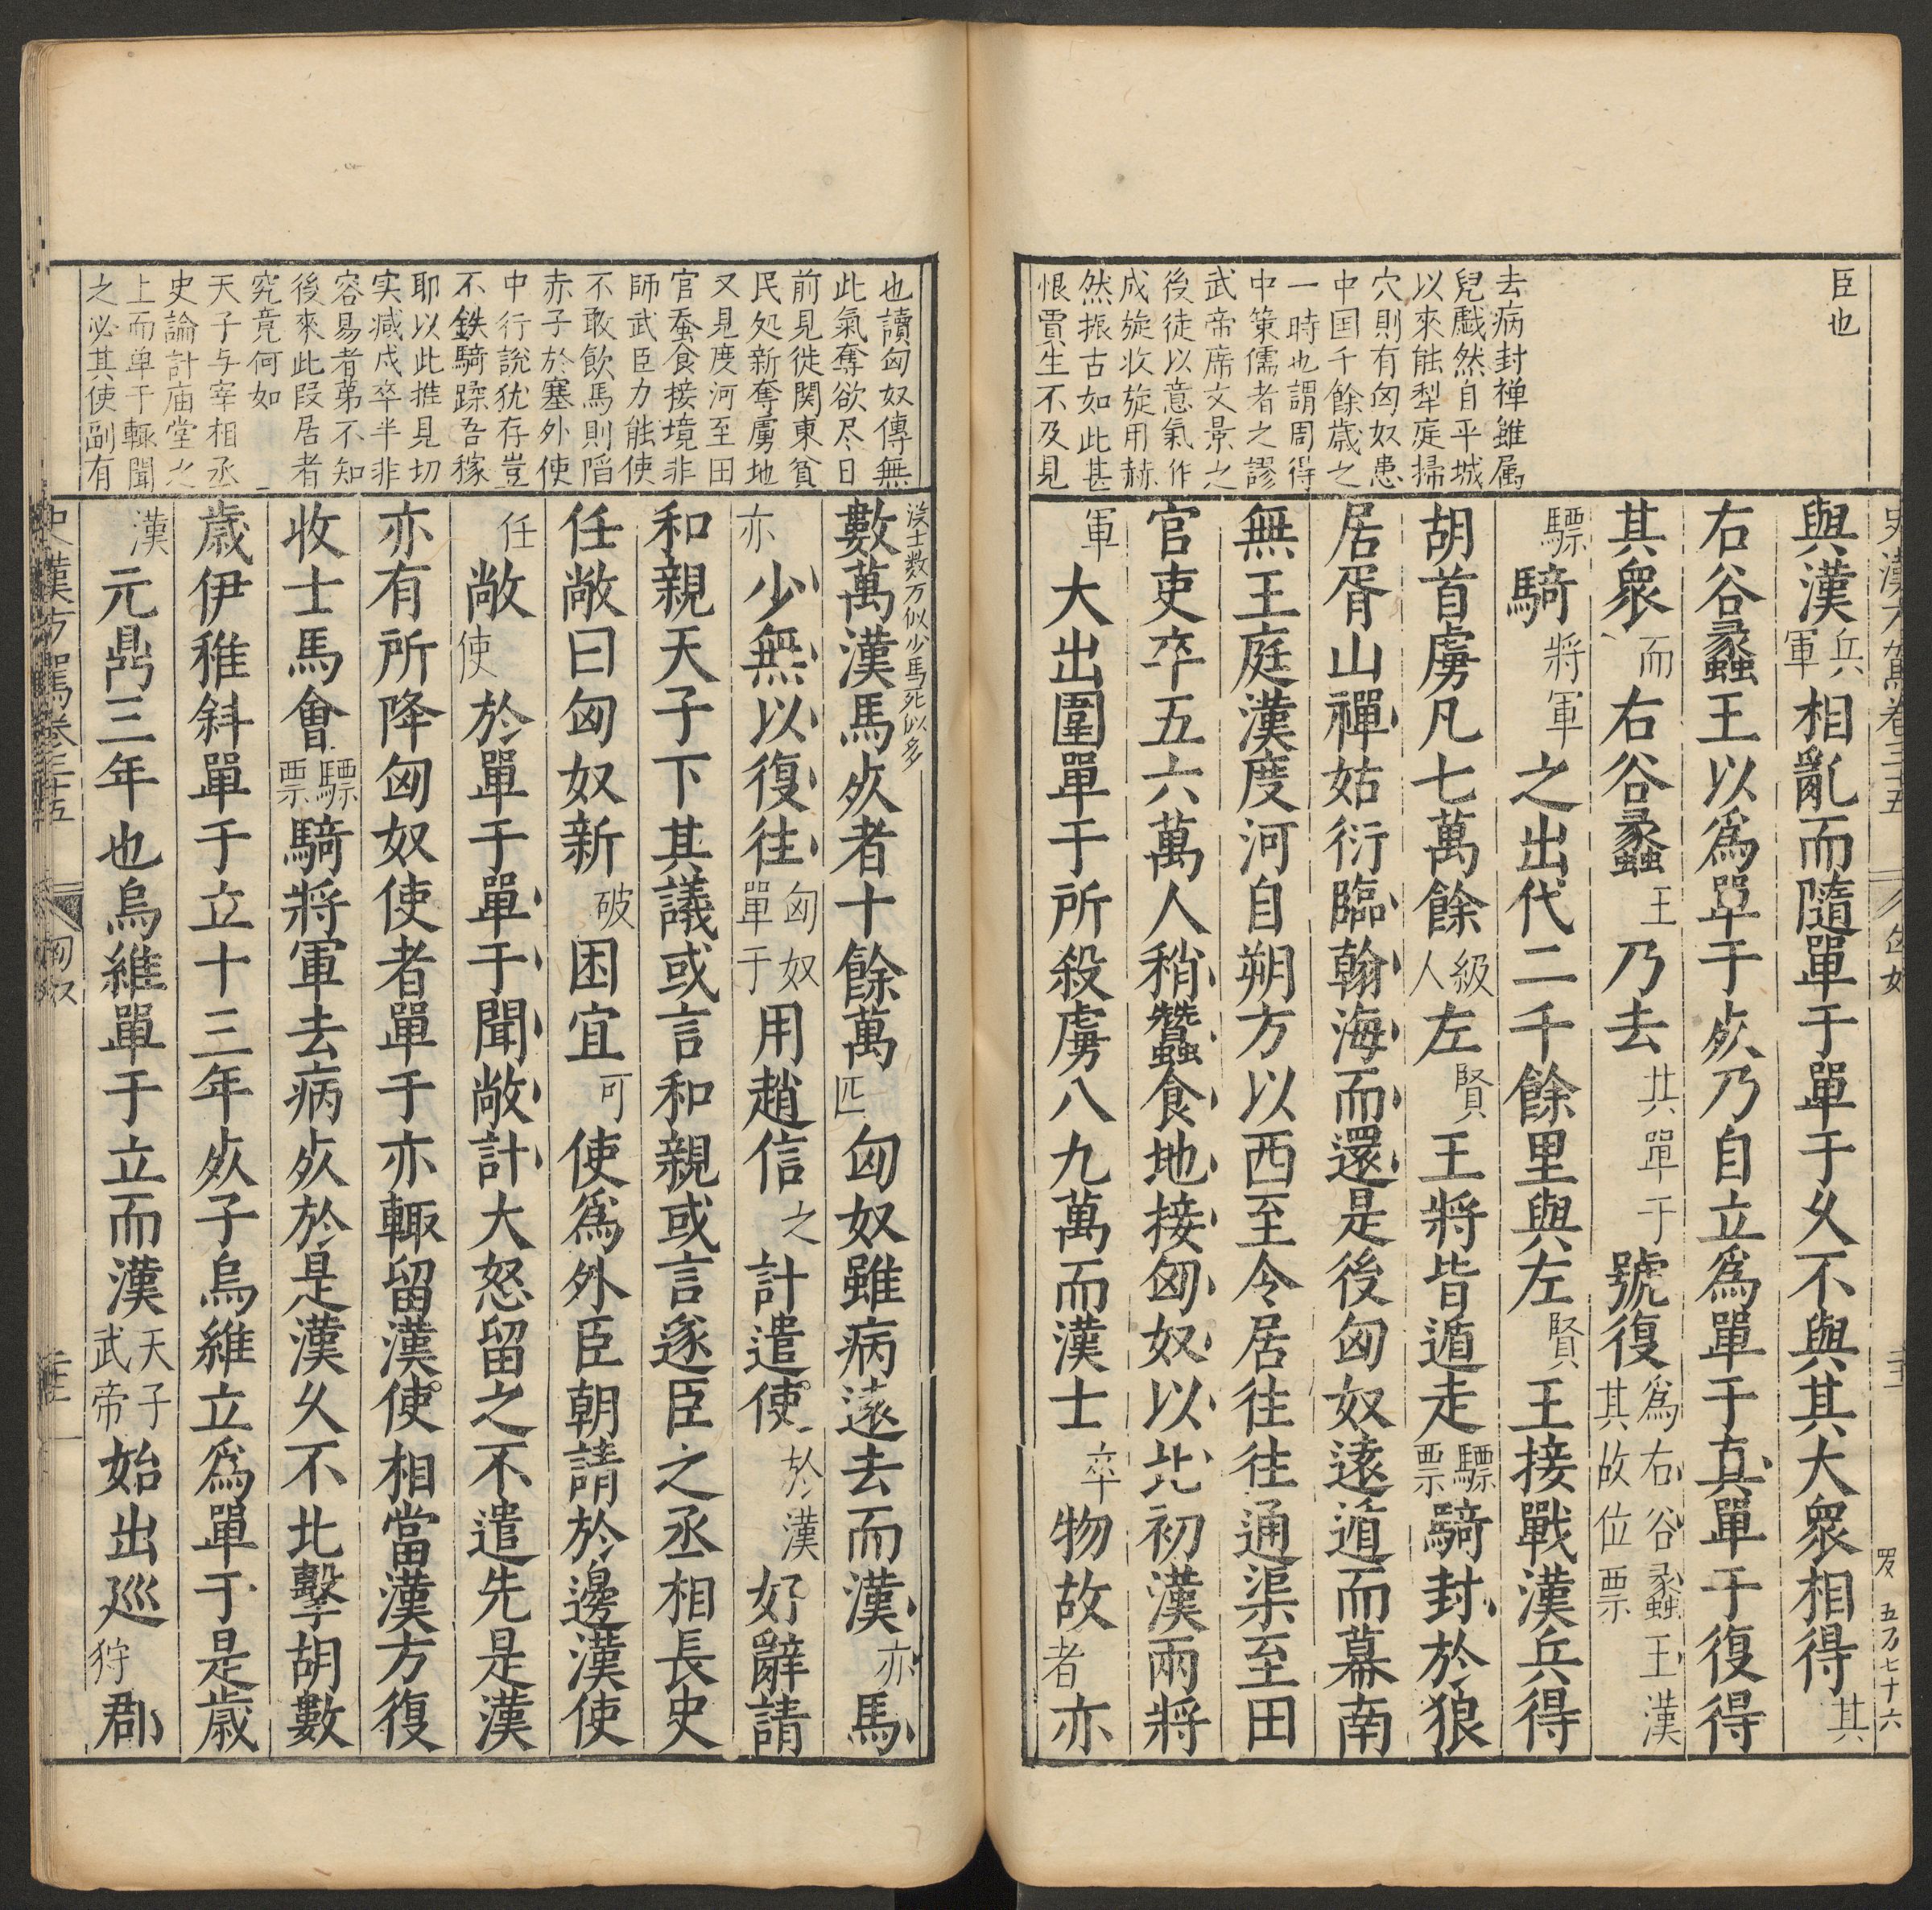 臣也
去病封禅雖属
兒戱然自平城
以來能犁庭掃
穴則有匈奴患
中国千餘歳之
一時也謂周得
中策儒者之謬
武帝席文景之
後徒以意氣作
成旋收旋用赫
然振古如此甚
恨賈生不及見
與漢兵軍相亂而隨單于單于久不與其大衆相得其
右谷蠡王以爲單于死乃自立爲單于真單于復得
其衆而右谷蠡王乃去其單于號復爲右谷蠡王漢其故位票
驃騎將軍之出代二千餘里與左賢王接戰漢兵得
胡首虜凡七萬餘級人左賢王將皆遁走驃票騎封於狼
居胥山禪姑衍臨翰海而還是後匈奴遠遁而幕南
無王庭漢度河自朔方以西至令居徃徃通渠至田
官吏卒五六萬人稍蠶食地接匈奴以北初漢兩將
軍大出圍單于所殺虜八九萬而漢士卒物故者亦
五万七十六
也讀匈奴傳無
此氣奪欲尽日
前見徙関東貧
民処新奪虜地
又見度河至田
官蚕食接境非
師武臣力能使
不敢飲馬則陷
赤子於塞外使
中行説犹存豈
不鉄騎蹂吾稼
耶以此推見切
实减戍卒半非
容易者苐不知
後來此叚居者
究竟何如
天子与宰相丞
史論計庙堂之
上而单于輙聞
之必其使副有
漢士数万似少馬死似多
數萬漢馬死者十餘萬匹匈奴雖病遠去而漢亦馬
亦少無以復徃匈奴單于用趙信之計遣使於漢好辭請
和親天子下其議或言和親或言遂臣之丞相長史
任敞曰匈奴新破困宜可使爲外臣朝請於邊漢使
任敞使於單于單于聞敞計大怒留之不遣先是漢
亦有所降匈奴使者單于亦輙留漢使相當漢方復
收士馬會驃票騎將軍去病死於是漢久不北擊胡數
歳伊稚斜單于立十三年死子烏維立爲單于是歳
漢元鼎三年也烏維單于立而漢天子武帝始出廵狩郡
史漢方駕卷三十五
匈奴